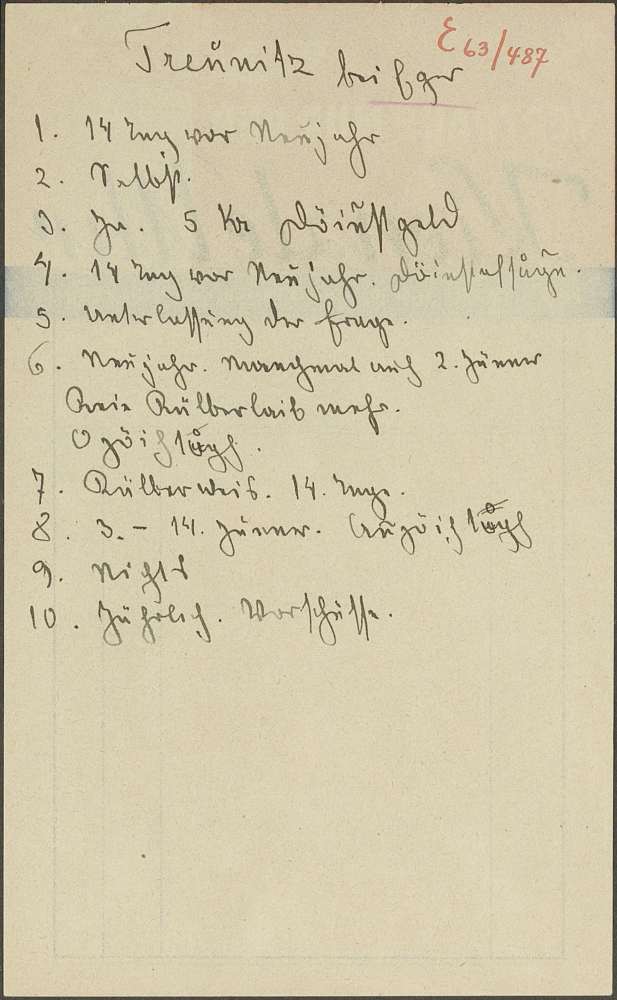 E 63/487
Treunitz bei Eger
1. 14 Tag vor Neujahr
2. Selbst.
3. Ja. 5 Kr Döinstgeld
4. 14 Tag vor Neujahr. Döinstafsågn.
5. Unterlassung der Frage.
6. Neujahr. Manchmal auch 2. Jänner
Kein Kälberlaib mehr.
Ozöichtågh.
7. Kälberweis. 14. Tage.
8. 3. - 14. Jänner. Auzöichtågh
9. Nichts
10. Jährlich. Vorschüsse.